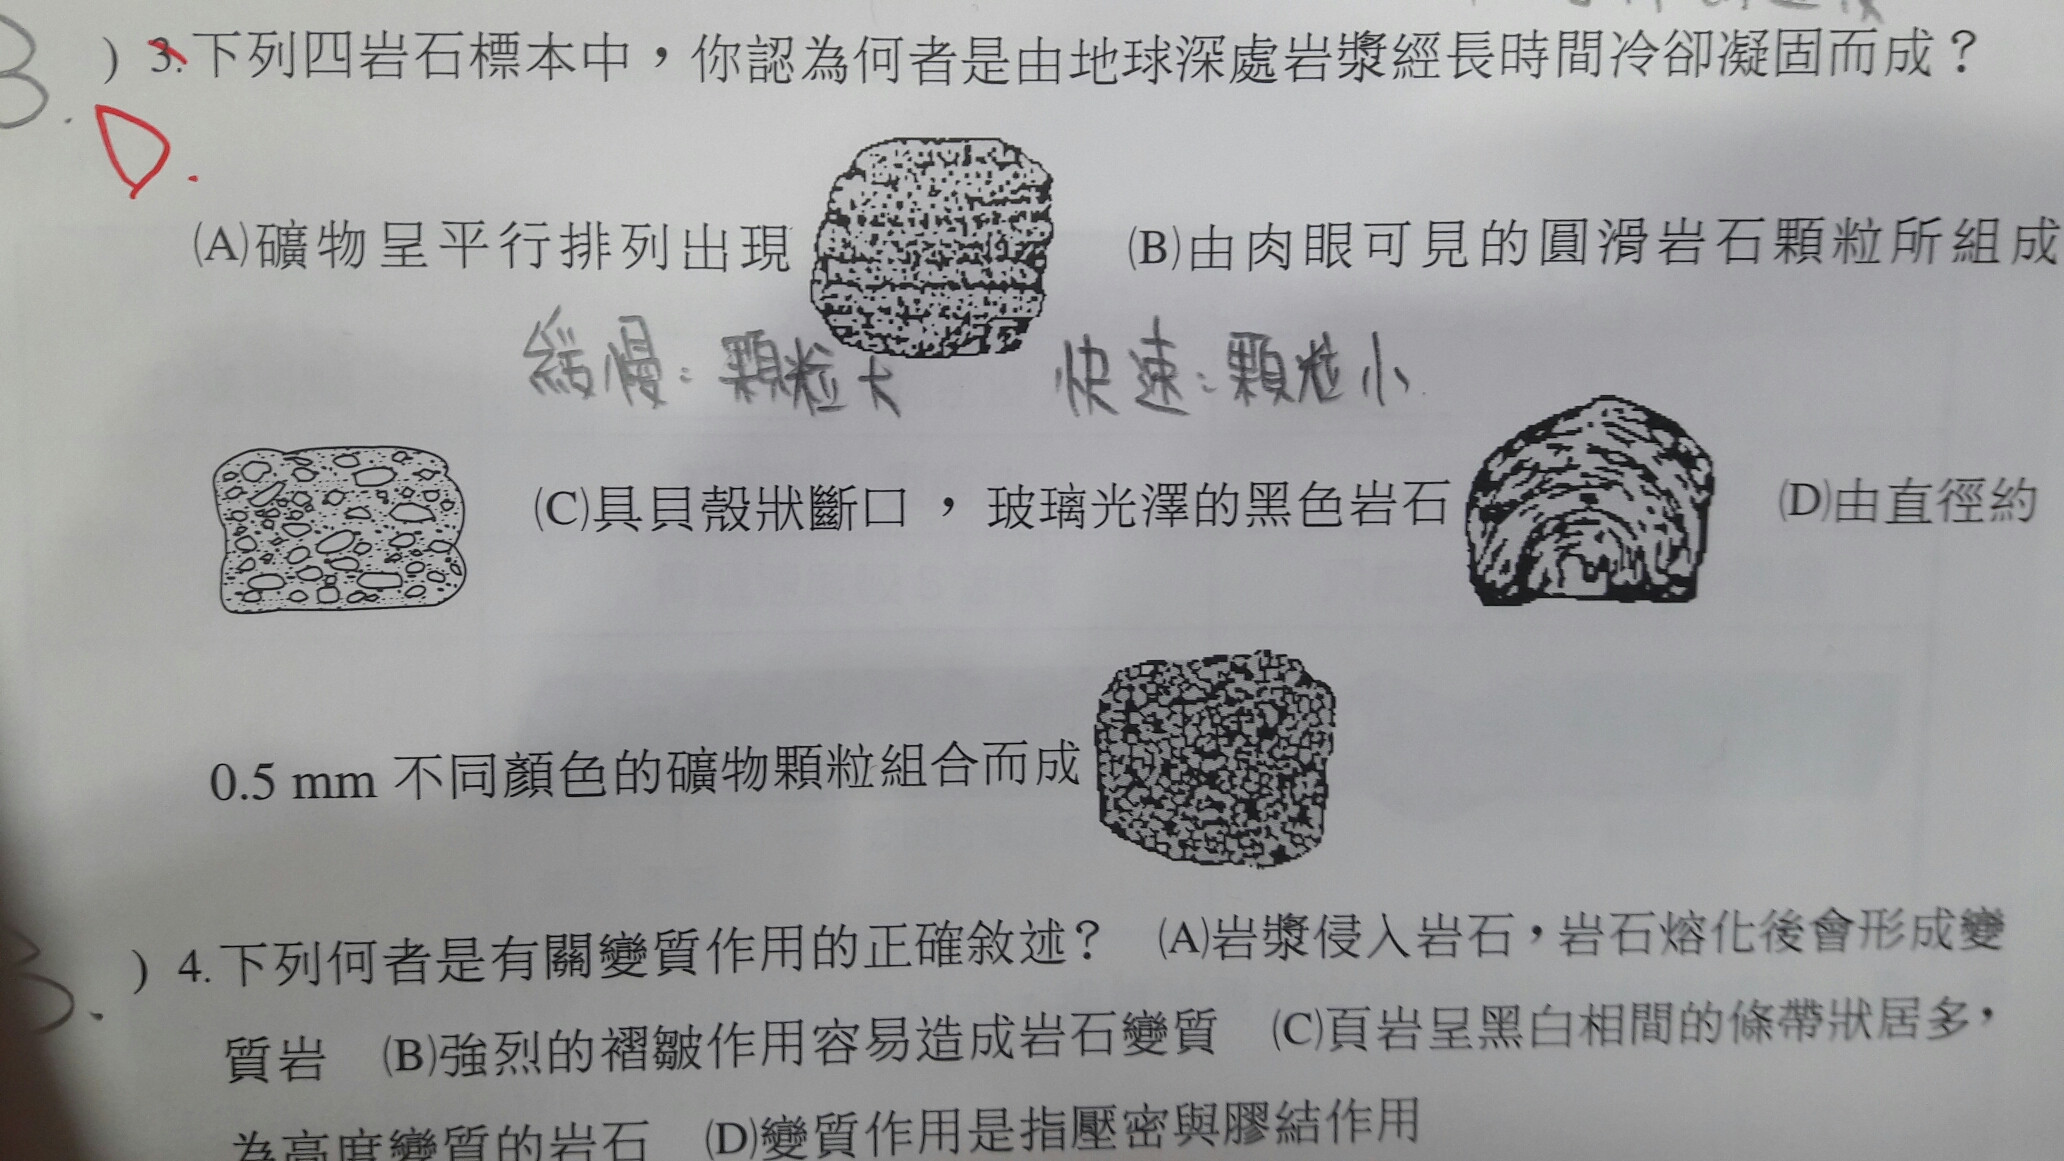 B.
) 3.下列四岩石標本中，你認為何者是由地球深處岩漿經長時間冷卻凝固而成？
D.
(A)礦物呈平行排列出現 (B)由肉眼可見的圓滑岩石顆粒所組成
緩慢：顆粒大 快速：顆粒小
(C)具貝殼狀斷口，玻璃光澤的黑色岩石 (D)由直徑約
0.5 mm 不同顏色的礦物顆粒組合而成
B.
) 4.下列何者是有關變質作用的正確敘述？ (A)岩漿侵入岩石，岩石熔化後會形成變
質岩 (B)強烈的褶皺作用容易造成岩石變質 (C)頁岩呈黑白相間的條帶狀居多，
為高度變質的岩石 (D)變質作用是指壓密與膠結作用